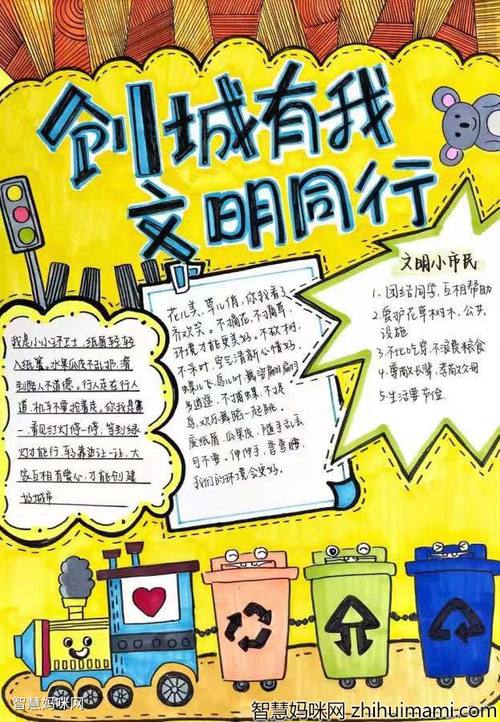 创城有我
文明同行
我是小小环卫士 纸屑轻轻
入纸篓,水果瓜皮不乱扔,滑
到路人不道德。行人走在行人
道,机车不要抢着走,你我是第
一.看见红灯停一停,等到绿
灯才能行.车靠边让一让,大
家互相有爱心,才能创建
好城市
花儿美,草儿俏,你我看了
齐欢笑.不摘花,不摘草,
环境才能更美好.不砍树,
不采叶,空气清新心情好.
蝶儿飞,鸟儿叫,舞容翩翩
多逍遥.不捕蝶,不捉
鸟,欢乐舞蹈一起跳.
废纸屑,瓜果皮,随手乱丢
可不要.伸伸手,弯弯腰
我们的环境会更好.
文明小市民
1.团结同学,互相帮助
2.爱护花草树木,公共
设施
3.不比吃穿,不浪费粮食
4.尊敬长辈,孝敬父母
5.生活要节俭
智慧妈咪网
智慧妈咪网 zhihuimami.com